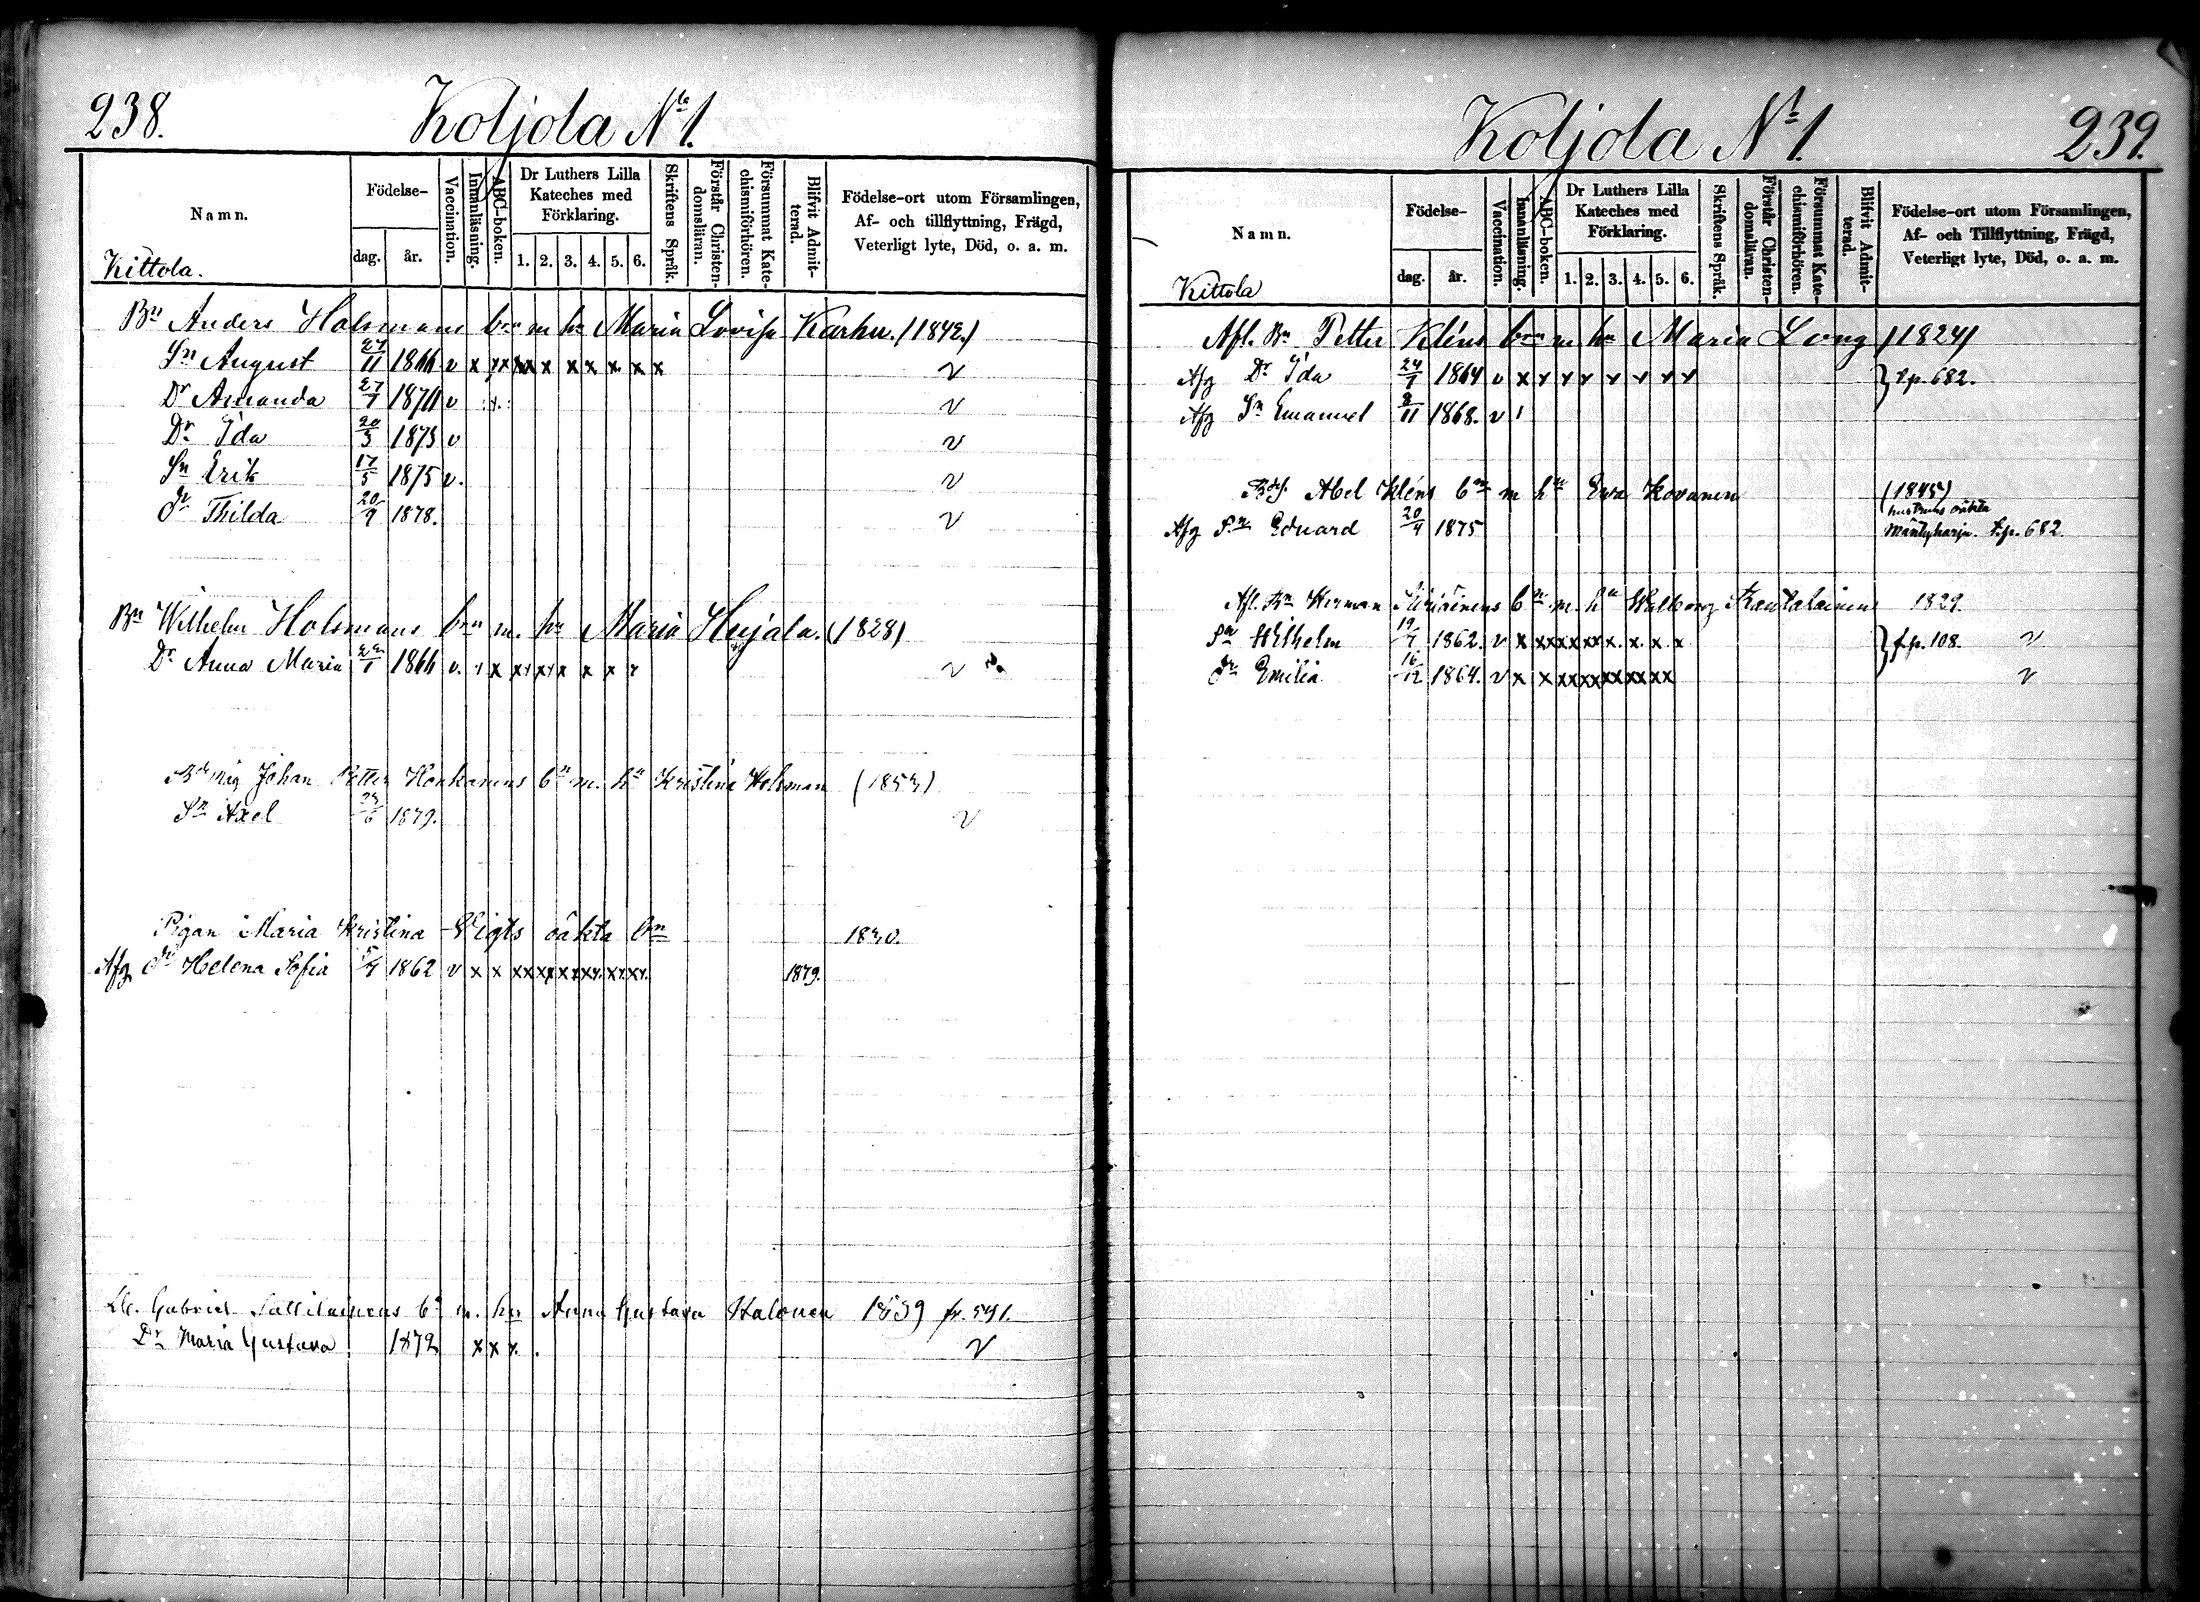 238.
Koljola N:o 1.
Namn.
Kittola.
Födelse-
dag.
år.
Vaccination.
Innanläsning.
ABC-boken.
Dr Luthers Lilla
Kateches med
Förklaring.
1. 2. 3. 4. 5. 6.
Skriftens Språk.
Förstår Christen-
domsläran.
Försummat Kate-
chismiförhören.
Blifvit Admit-
terad.
Födelse-ort utom Församlingen,
Af- och tillflyttning, Frägd,
Veterligt lyte, Död, o. a. m.
Bn Anders Holsmans bn m hu Maria Lovisa Karhu. (1842.)
Sn August 27/11 1866 v x xx x x x x x x x v
Dr Amanda 27/7 1870 v x. v
Dr Ida 20/3 1873 v v
Sn Erik 17/5 1875 v. v
Dr Thilda 20/9 1878. v
Bn Wilhelm Holsmans bn m. hu Maria Hujala. (1828)
Dr Anna Maria 1866 v. x x xx xx x x x x v
Johan Petter Honkanens bn m. hu Kristina Holsman
Sn Axel 1879. v
Pigan Maria Kristina oäkta bn
Afg Dr Helena Sofia 1862 v x x xx xx xx xx xx xx 1879.
Gabriel bn m. hu Anna Gustava Halonen 1839 fr. 591.
Dr Maria Gustava 1872 x x x. v
Koljola N:o 1.
239.
Namn.
Kittola
Födelse-
dag.
år.
Vaccination.
Innanläsning.
ABC-boken.
Dr Luthers Lilla
Kateches med
Förklaring.
1. 2. 3. 4. 5. 6.
Skriftens Språk.
Förstår Christen-
domsläran.
Försummat Kate-
chismiförhören.
Blifvit Admit-
terad.
Födelse-ort utom Församlingen,
Af- och Tillflyttning, Frägd,
Veterligt lyte, Död, o. a. m.
Afl. Bn Petter Kléns bn m hu Maria Long (1824)
Afg Dr Ida 24/7 1864 v x x x x x x x x } t.p. 682.
Afg Sn Emanuel 8/11 1868. v
Abel Kléns bn m hu Eva Kovanen (1845)
hustruns oäkta
Afg Sn Eduard 20/4 1875 Mäntyharju. t.p. 682.
Afl. Bn Herman bn m. hu Walborg Rautalainen 1829.
Sn Wilhelm 19/7 1862. v x xx xx xx x. x. x. x } f.p. 108. v
Dr Emilia 16/12 1864. v x x xx xx xx xx xx v